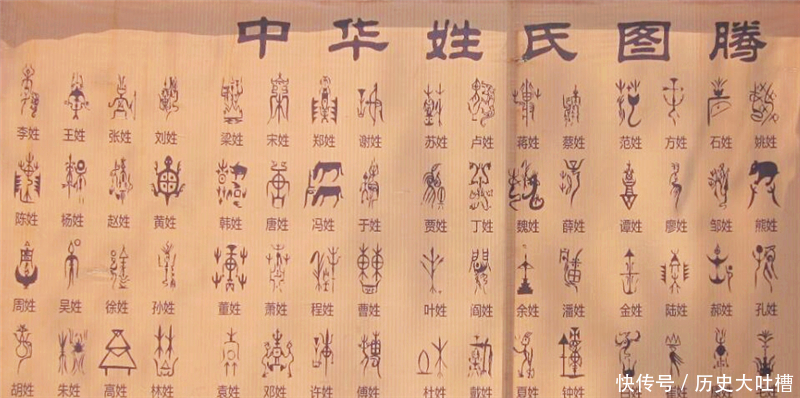 中华姓氏图腾
李姓 王姓 张姓 刘姓 梁姓 宋姓 郑姓 谢姓 苏姓 卢姓 蒋姓 蔡姓 范姓 方姓 石姓 姚姓
陈姓 杨姓 赵姓 黄姓 韩姓 唐姓 冯姓 于姓 贾姓 丁姓 魏姓 薛姓 谭姓 廖姓 邹姓 熊姓
周姓 吴姓 徐姓 孙姓 董姓 萧姓 程姓 曹姓 叶姓 阎姓 余姓 潘姓 金姓 陆姓 郝姓 孔姓
胡姓 朱姓 高姓 林姓 袁姓 邓姓 许姓 傅姓 杜姓 戴姓 夏姓 钟姓
快传号 / 历史大吐槽